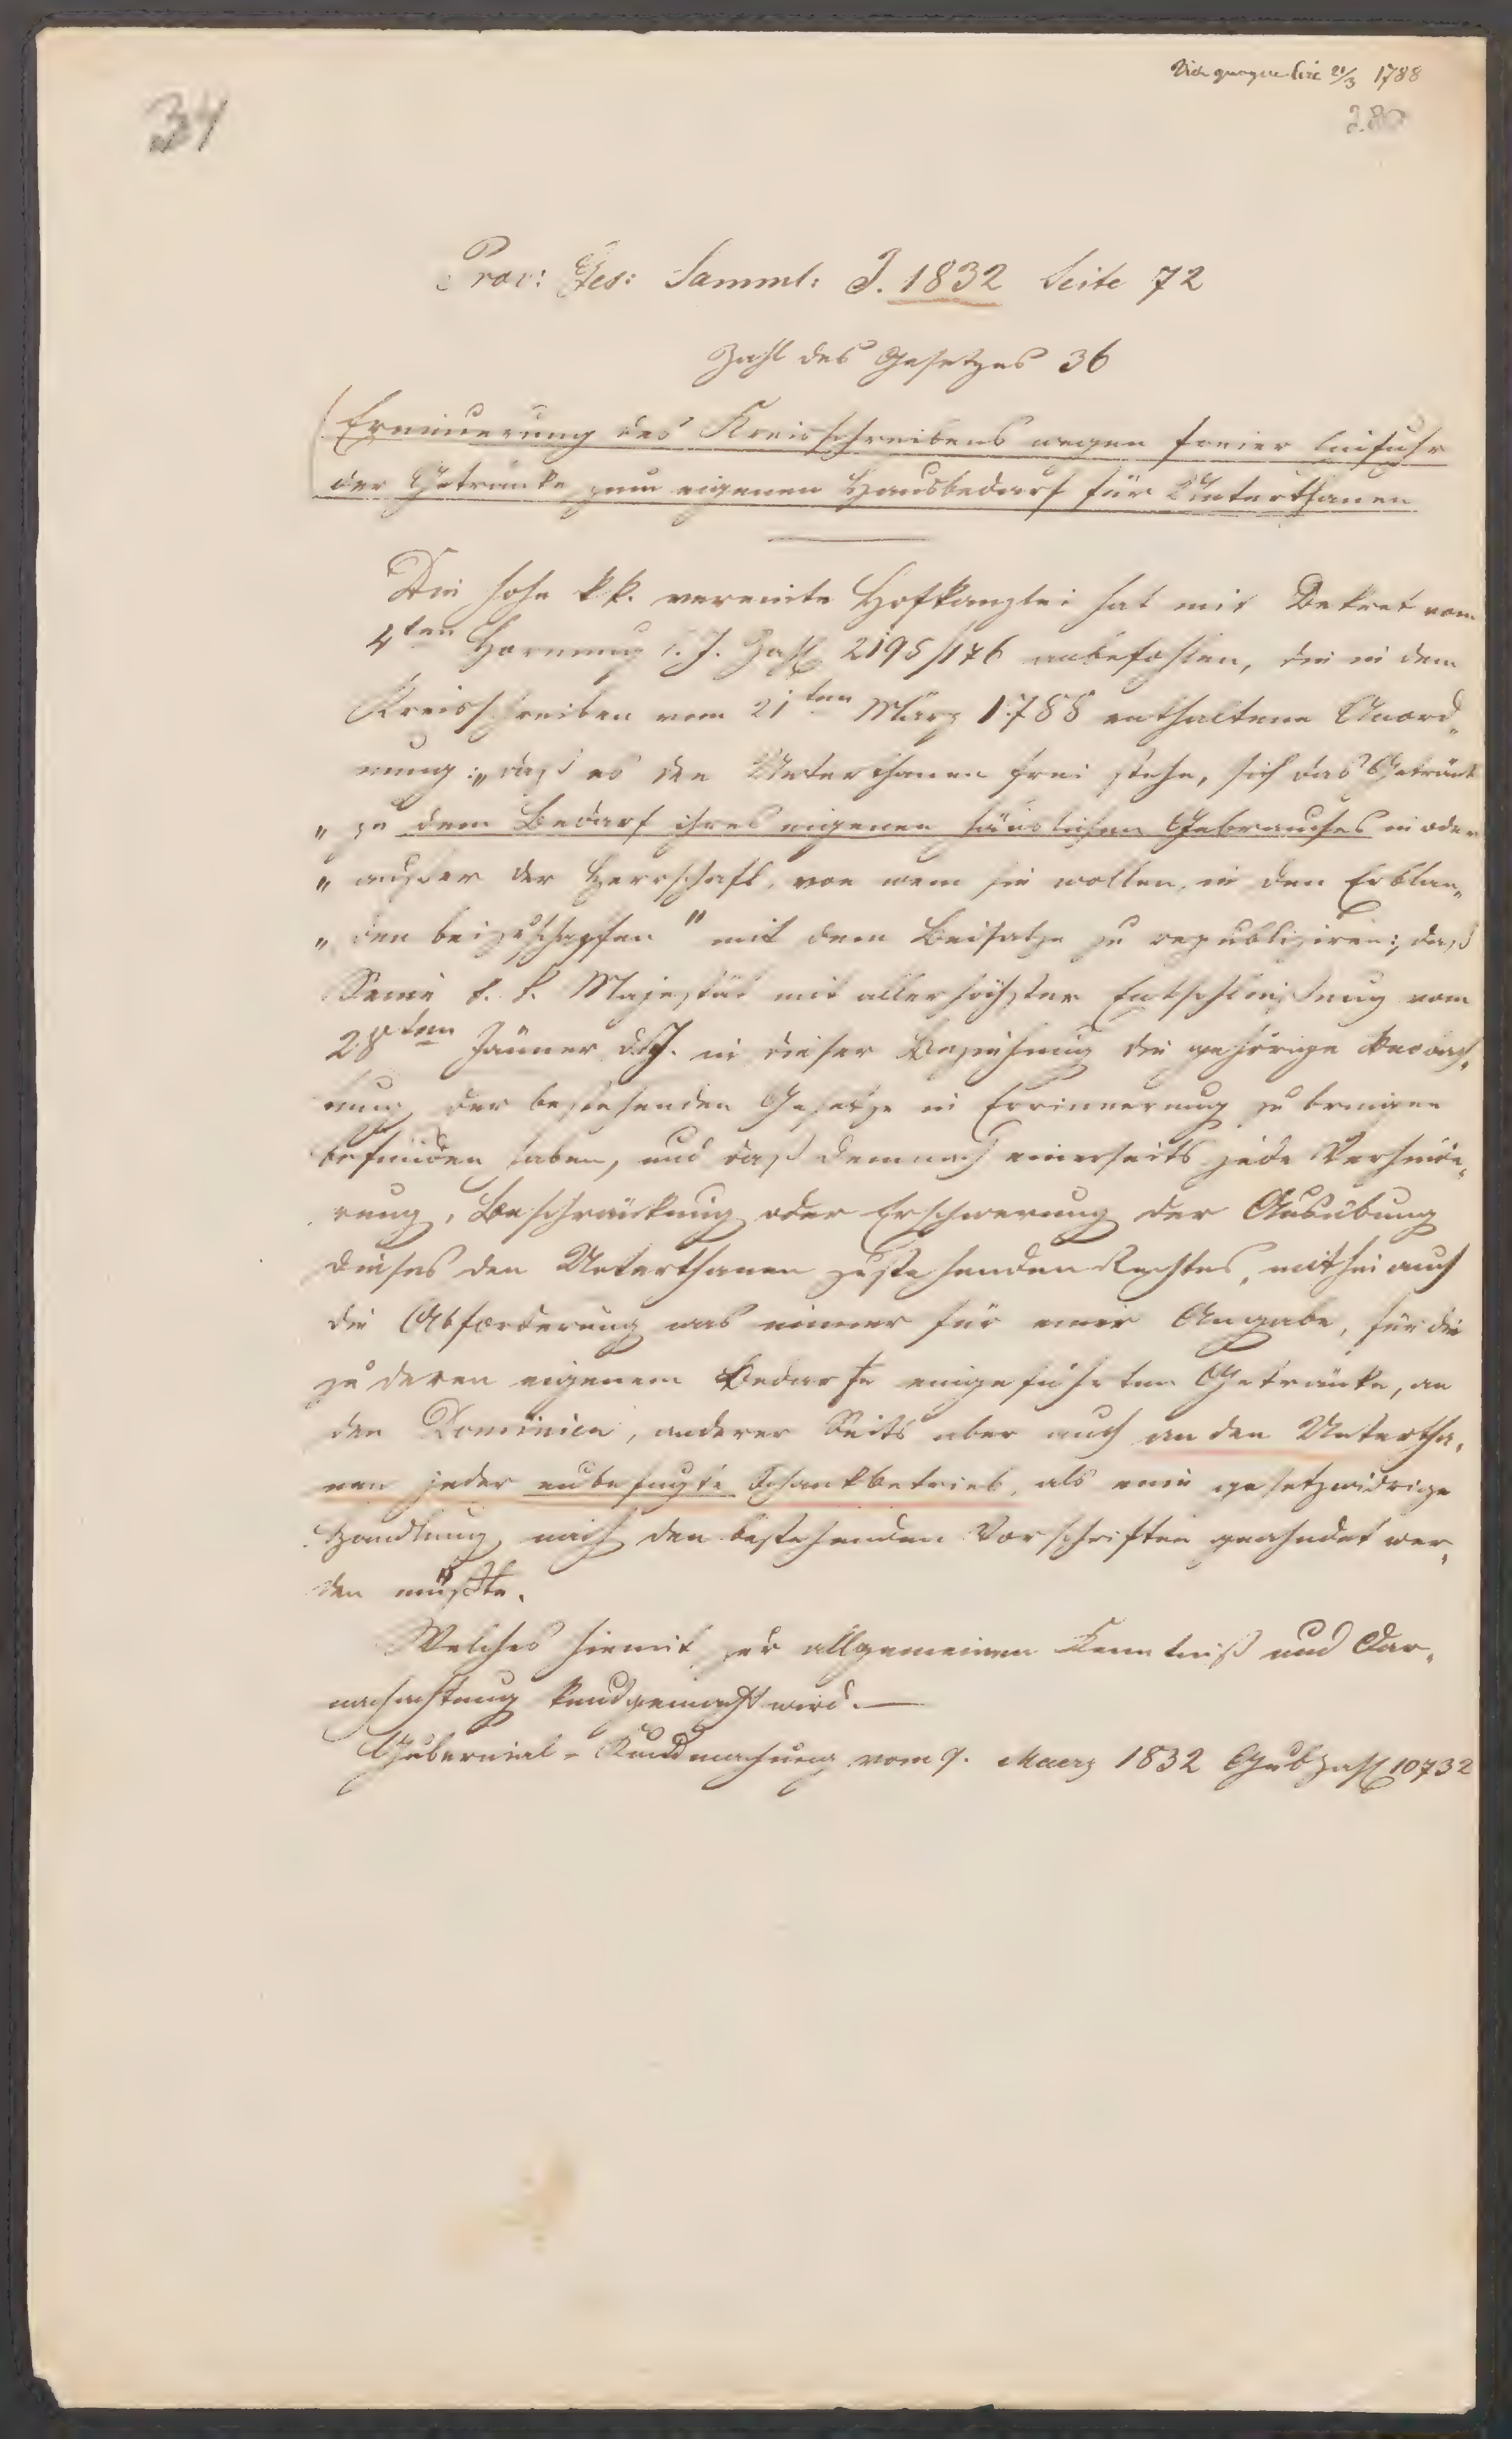 Vide quoque Circ 21/3 1788
34
280
Prov: Ges: Samml: J. 1832 Seite 72
Zahl des Gesetzes 36
Erneuerung des Kreisschreibens wegen freier Einfuhr
der Getränke zum eigenen Hausbedarf für Unterthanen
Die hohe k.k. vereinte Hofkanzlei hat mit Dekret vom
4ten Hornung l. J. Zahl 2195/176 anbefohlen, die in dem
Kreisschreiben vom 21ten März 1788 enthaltene Anord„
nung: „daß es den Unterthanen frei stehe, sich das Getränk
„ zu dem Bedarf ihres eigenen häuslichen Gebrauches in oder
„ außer der Herrschaft, von wem sie wollen, in den Erblän„
„ den beizuschaffen" mit dem Beisatze zu republiziren: daß
Seine k. k. Majestät mit allerhöchster Entschließung vom
28ten Jänner d. J. in dieser Beziehung die gehörige Beobach„
tung der bestehenden Gesetze in Erinnerung zu bringen
befunden haben, und daß demnach einerseits jede Verhinde„
rung, Beschränkung oder Erschwerung der Ausübung
dieses den Unterthanen zustehenden Rechtes, mithin auch
die Abforderung was immer für einer Abgabe, für die
zu deren eigenem Bedarfe eingeführten Getränke, an
den Dominien, anderer Seits aber auch an den Untertha„
nen jeder unbefugte Schankbetrieb, als eine gesetzwidrige
Handlung nach den bestehenden Vorschriften geahndet wer„
den müßte.
Welches hiemit zur allgemeinen Kenntniß und Dar„
nachachtung kundgemacht wird. —
Gubernial-Kundmachung vom 9. Maerz 1832 GubZahl 10732